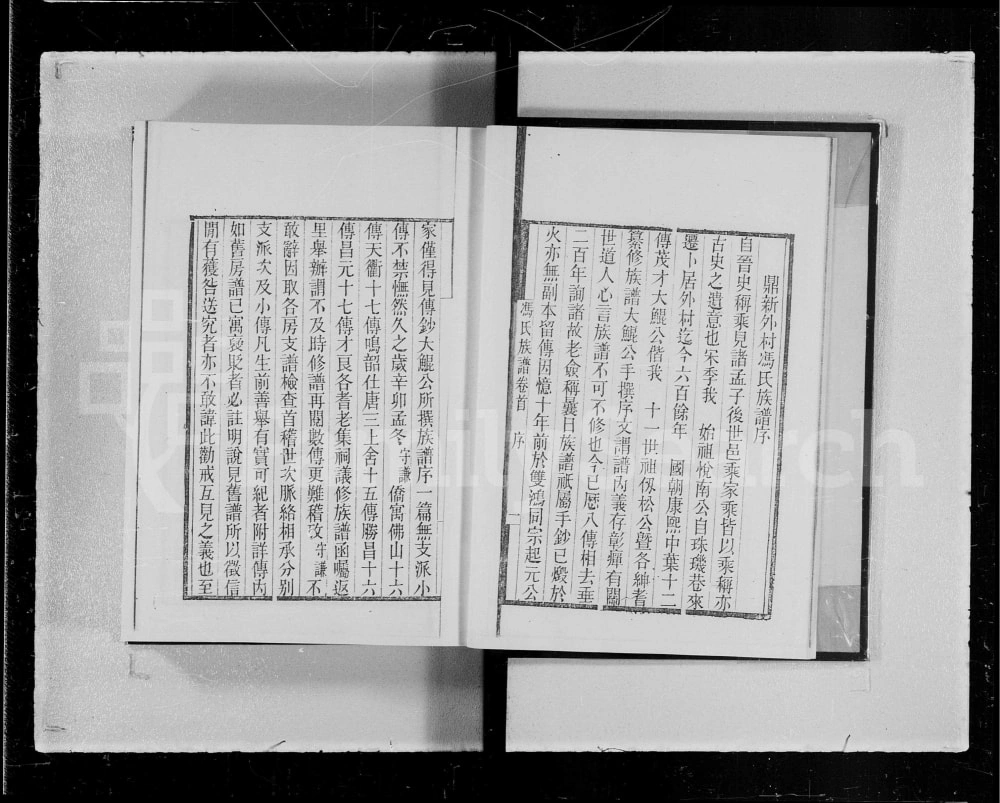 鼎新外村馮氏族譜序
自晉史稱乘見諸孟子後世邑乘家乘皆以乘稱亦
古史之遺意也宋季我　始祖悅南公自珠璣巷來
遷卜居外村迄今六百餘年　國朝康熙中葉十二
傳茂才大鯤公偕我　十一世祖伋松公暨各紳耆
纂修族譜大鯤公手撰序文謂譜內義存彰癉有關
世道人心言族譜不可不修也今已歷八傳相去垂
二百年詢諸故老僉稱曩日族譜祇屬手鈔已燬於
火亦無副本留傳因憶十年前於雙鴻同宗起元公
馮氏族譜卷首　序　一
家僅得見傳鈔大鯤公所撰族譜序一篇無支派小
傳不禁憮然久之歲辛卯孟冬守謙僑寓佛山十六
傳天衢十七傳鳴韶仕唐三上舍十五傳勝昌十六
傳昌元十七傳才良各耆老集祠議修族譜函囑返
里舉辦謂不及時修譜再閱數傳更難稽攷守謙不
敢辭因取各房支譜檢查首稽世次脈絡相承分別
支派次及小傳凡生前善舉有實可紀者附詳傳內
如舊房譜已寓褒貶者必註明說見舊譜所以徵信
間有獲咎送究者亦不敢諱此勸戒互見之義也至